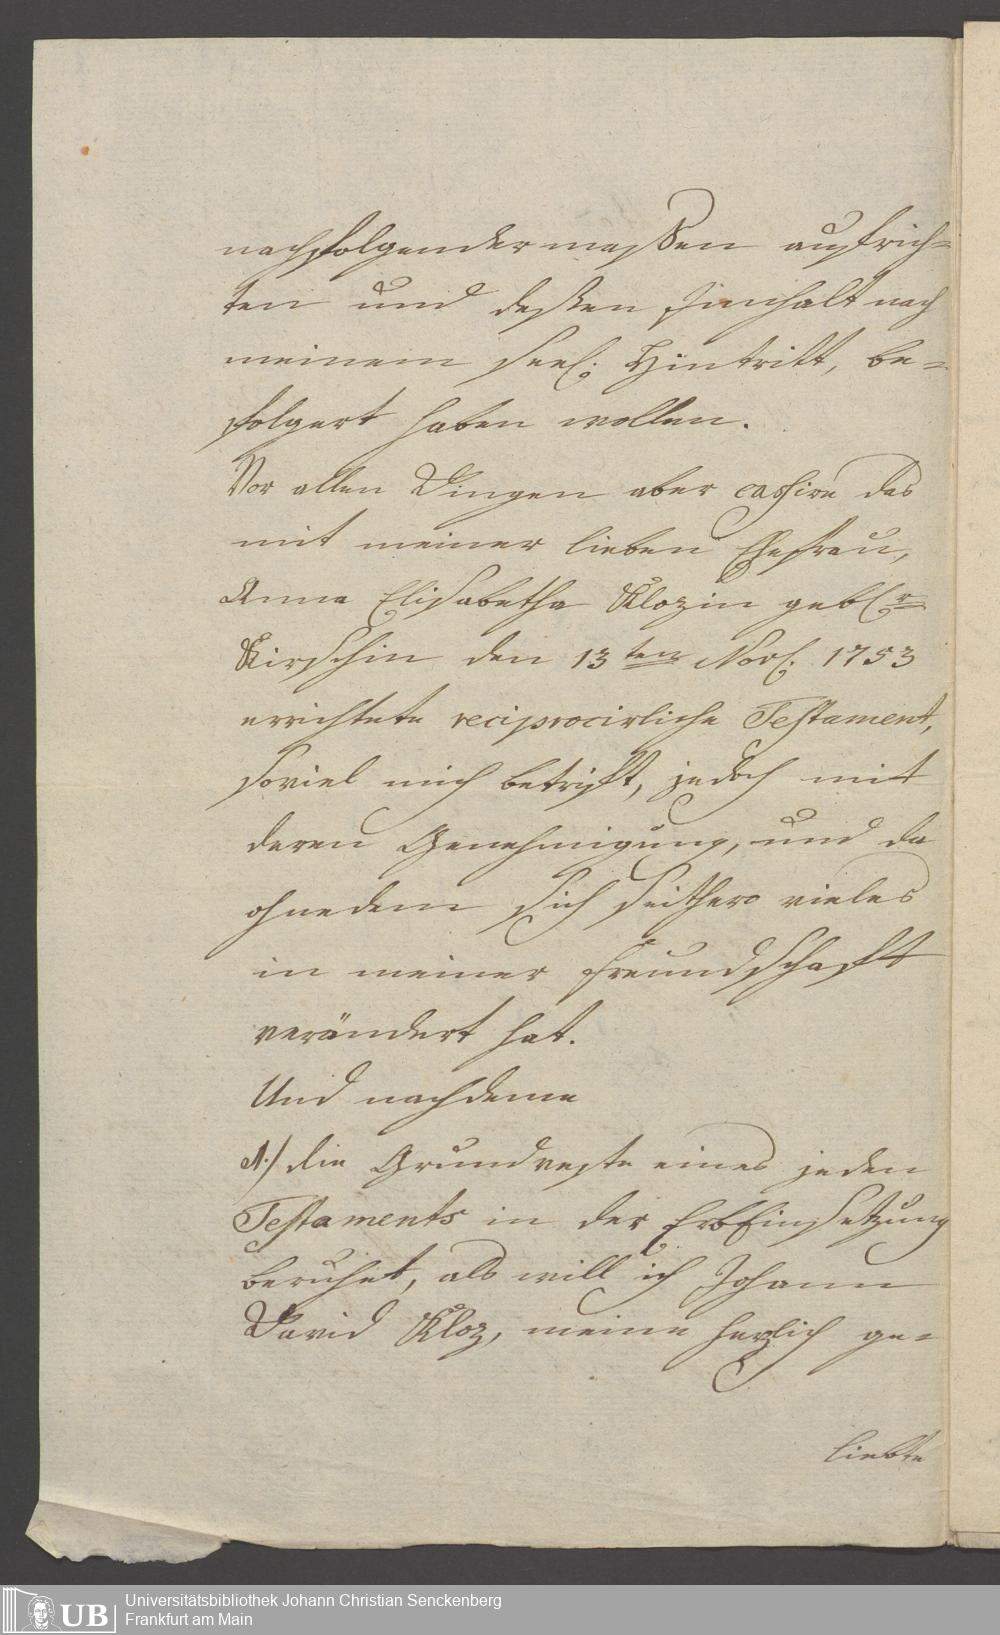 nachfolgender massen aufrich=
ten und dessen Innhalt nach
meinem seel: Hintritt, be=
folgert haben wollen.
Vor allen Dingen aber cassire das
mit meiner lieben Ehefrau,
Anna Elisabetha Klozin gebohr
Kirschin den 13ten Nov: 1753
errichtete reciprocirliche Testament,
soviel mich betrifft, jedoch mit
deren Genehmigung, und da
ohnedem sich seithero vieles
in meiner Freundschafft
verändert hat.
Und nachdeme
1./ die Grundveste eines jeden
Testaments in der ErbEinsetzung
beruhet, als will ich Johann
David Kloz, meine herzlich ge=
liebte
UB
Universitätsbibliothek Johann Christian Senckenberg
Frankfurt am Main